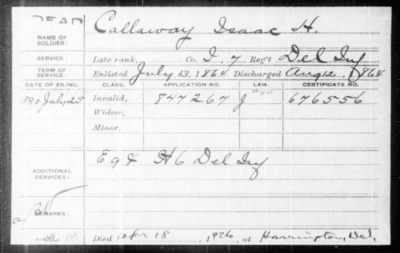 DEAD
NAME OF SOLDIER: Callaway Isaac H.
SERVICE: Late rank, Co. I, 7 Reg't Del Inf
TERM OF SERVICE: Enlisted July 13, 1864 Discharged Aug 12, 1864
DATE OF FILING. CLASS. APPLICATION NO. LAW. CERTIFICATE NO.
'90 July 25 Invalid, 847267 J 676556
Widow,
Minor,
ADDITIONAL SERVICES: E 9 & H 6 Del Inf
REMARKS:
Died Apr 18, 1926, at Harrington, Del.